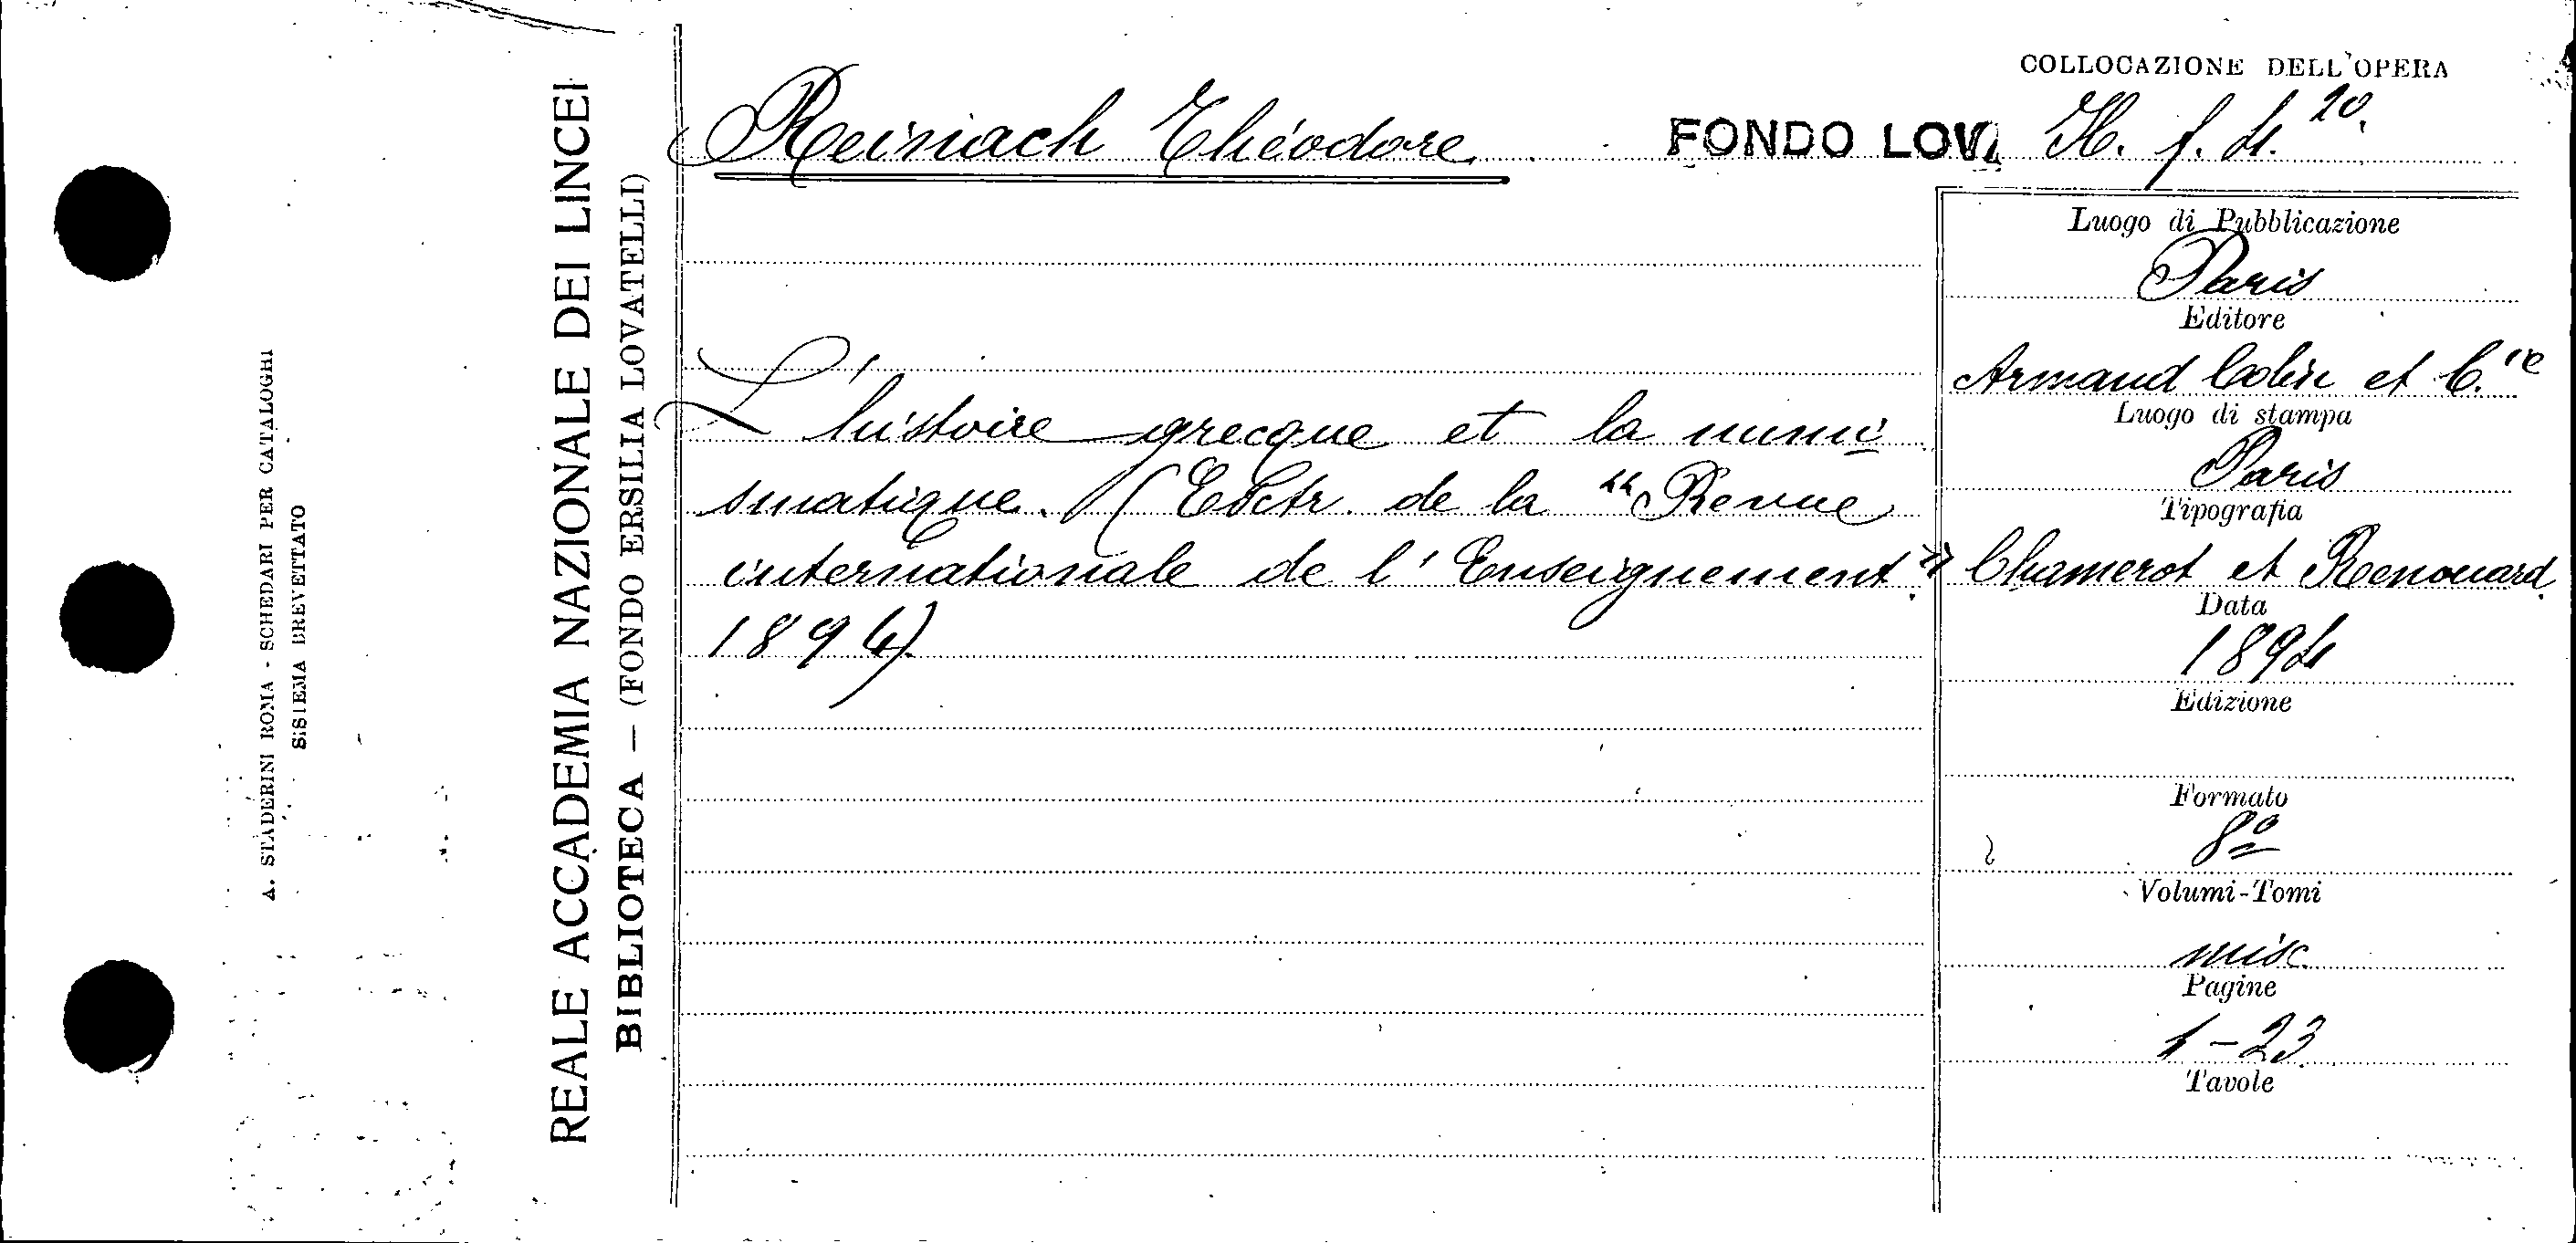 A. STADERINI ROMA - SCHEDARI PER CATALOGHI
SISTEMA BREVETTATO
REALE ACCADEMIA NAZIONALE DEI LINCEI
BIBLIOTECA — (FONDO ERSILIA LOVATELLI)
Reinach Théodore
FONDO LOV.
COLLOCAZIONE DELL'OPERA
H. f. 4. 20.
L'histoire grecque et la numi
smatique. (Extr. de la "Revue
internationale de l'Enseignement"
1894).
Luogo di Pubblicazione
Paris
Editore
Armand Colin et C.ie
Luogo di stampa
Paris
Tipografia
Chamerot et Renouard
Data
1894
Edizione
Formato
8º
Volumi-Tomi
misc
Pagine
1-23
Tavole